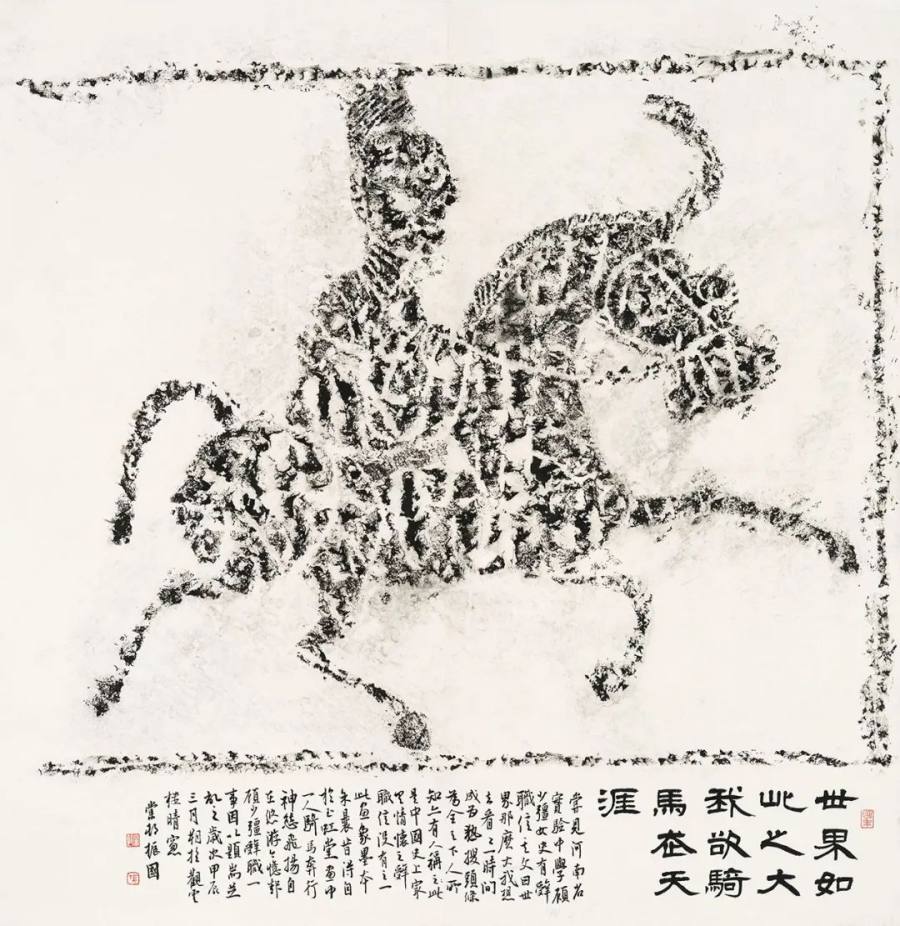 世果如
此之大
我欲騎
馬走天
涯
嘗見河南省
實驗中學顧
少彊女史有辭
職信其文曰世
界那麼大我想
去看看一時間
成為熱搜頭條
為全天下人所
知亦有人稱之此
是中國史上最
具情懷之辭
職信沒有之一
此畫象墨本
昔得自
於 堂畫中
一人騎馬奔行
神態飛揚自
在 游 憶
顧少彊辭職一
事因以題耑并
記之歲次甲辰
三月朔於觀雲
樓晴窗
振國